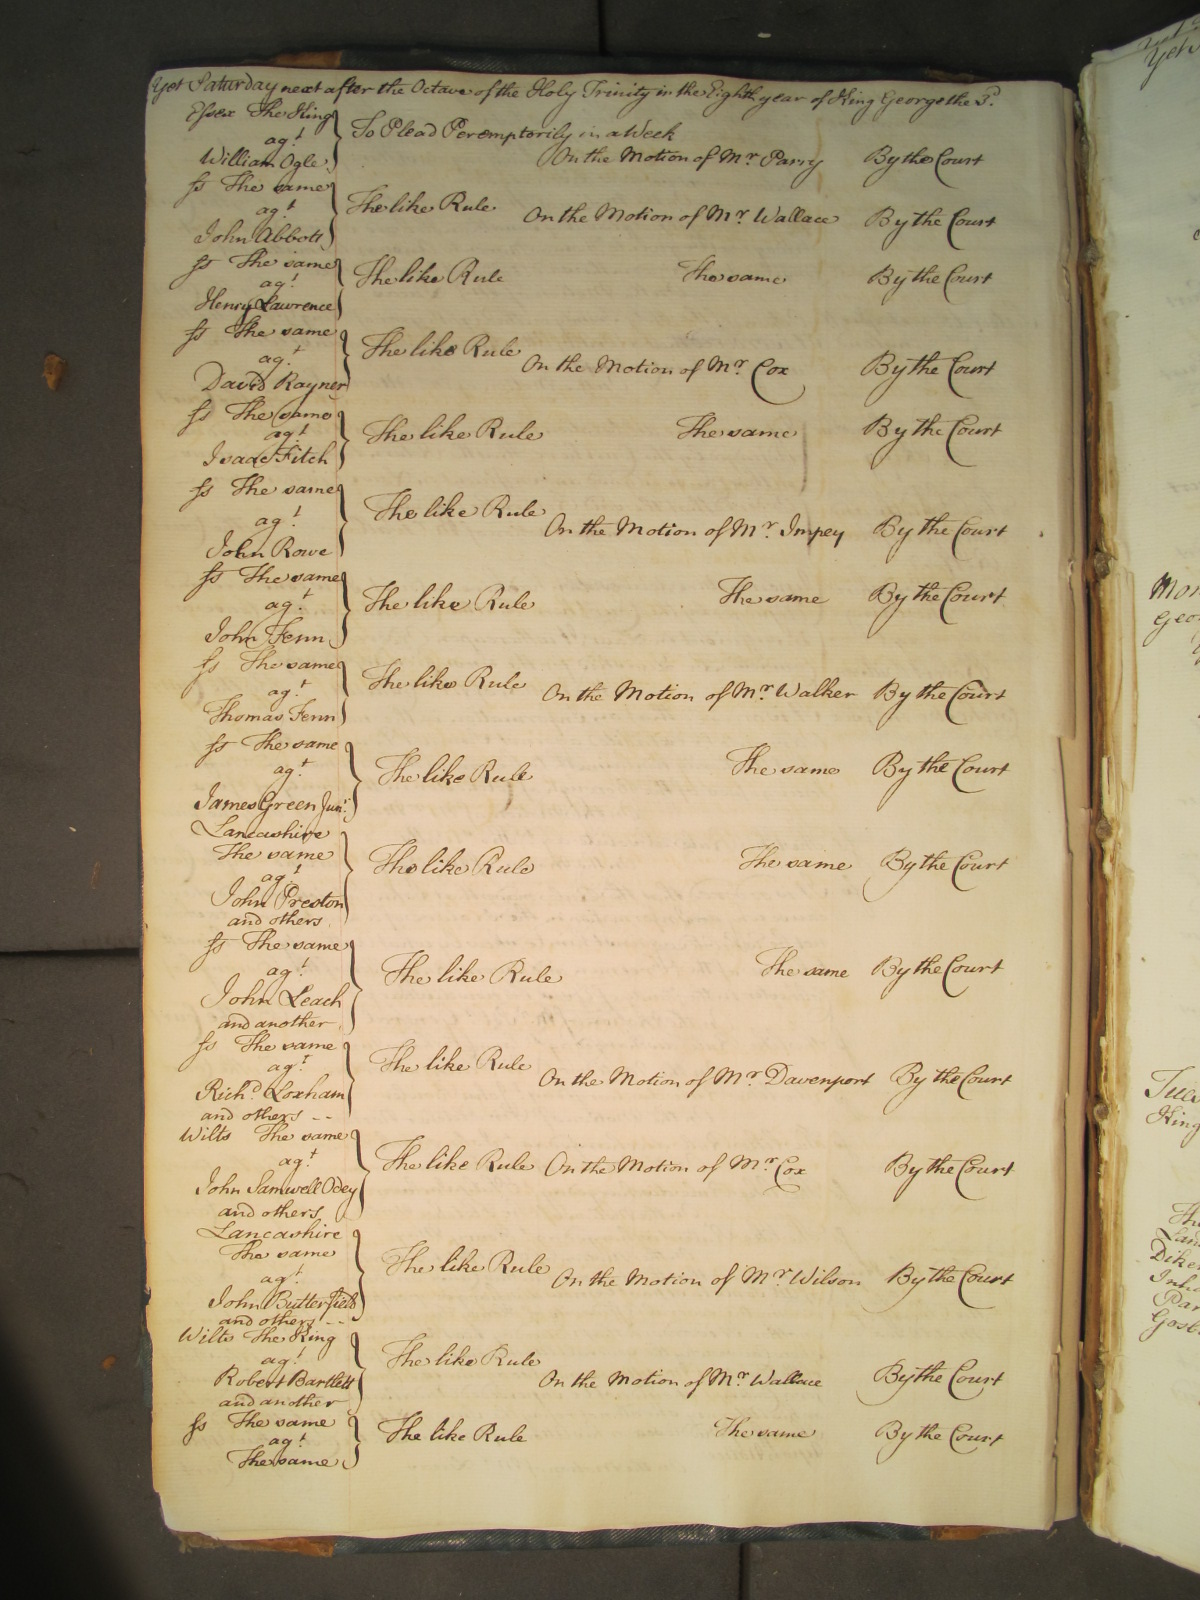 Yet Saturday next after the Octave of the Holy Trinity in the Eighth year of King George the 3d.
Essex The King
agt
William Ogle
To Plead Peremptorily in a Week
On the Motion of Mr Parry By the Court
Ss The same
agt
John Abbott
The like Rule
On the Motion of Mr Wallace By the Court
Ss The same
agt
Henry Lawrence
The like Rule The same By the Court
Ss The same
agt
David Rayner
The like Rule
On the Motion of Mr Cox By the Court
Ss The same
agt
Isaac Fitch
The like Rule The same By the Court
Ss The same
agt
John Rowe
The like Rule
On the Motion of Mr Impey By the Court
Ss The same
agt
John Fenn
The like Rule The same By the Court
Ss The same
agt
Thomas Fenn
The like Rule On the Motion of Mr Walker By the Court
Ss The same
agt
James Green Junr
The like Rule The same By the Court
Lancashire
The same
agt
John Preston
and others
The like Rule The same By the Court
Ss The same
agt
John Leach
and another
The like Rule The same By the Court
Ss The same
agt
Richd Loxham
and others --
The like Rule On the Motion of Mr Davenport By the Court
Wilts The same
agt
John Samwell Odey
and others
The like Rule On the Motion of Mr Cox By the Court
Lancashire
The same
agt
John Butterfield
and others --
The like Rule On the Motion of Mr Wilson By the Court
Wilts The King
agt
Robert Bartlett
and another
The like Rule
On the Motion of Mr Wallace By the Court
Ss The same
agt
The same
The like Rule The same By the Court